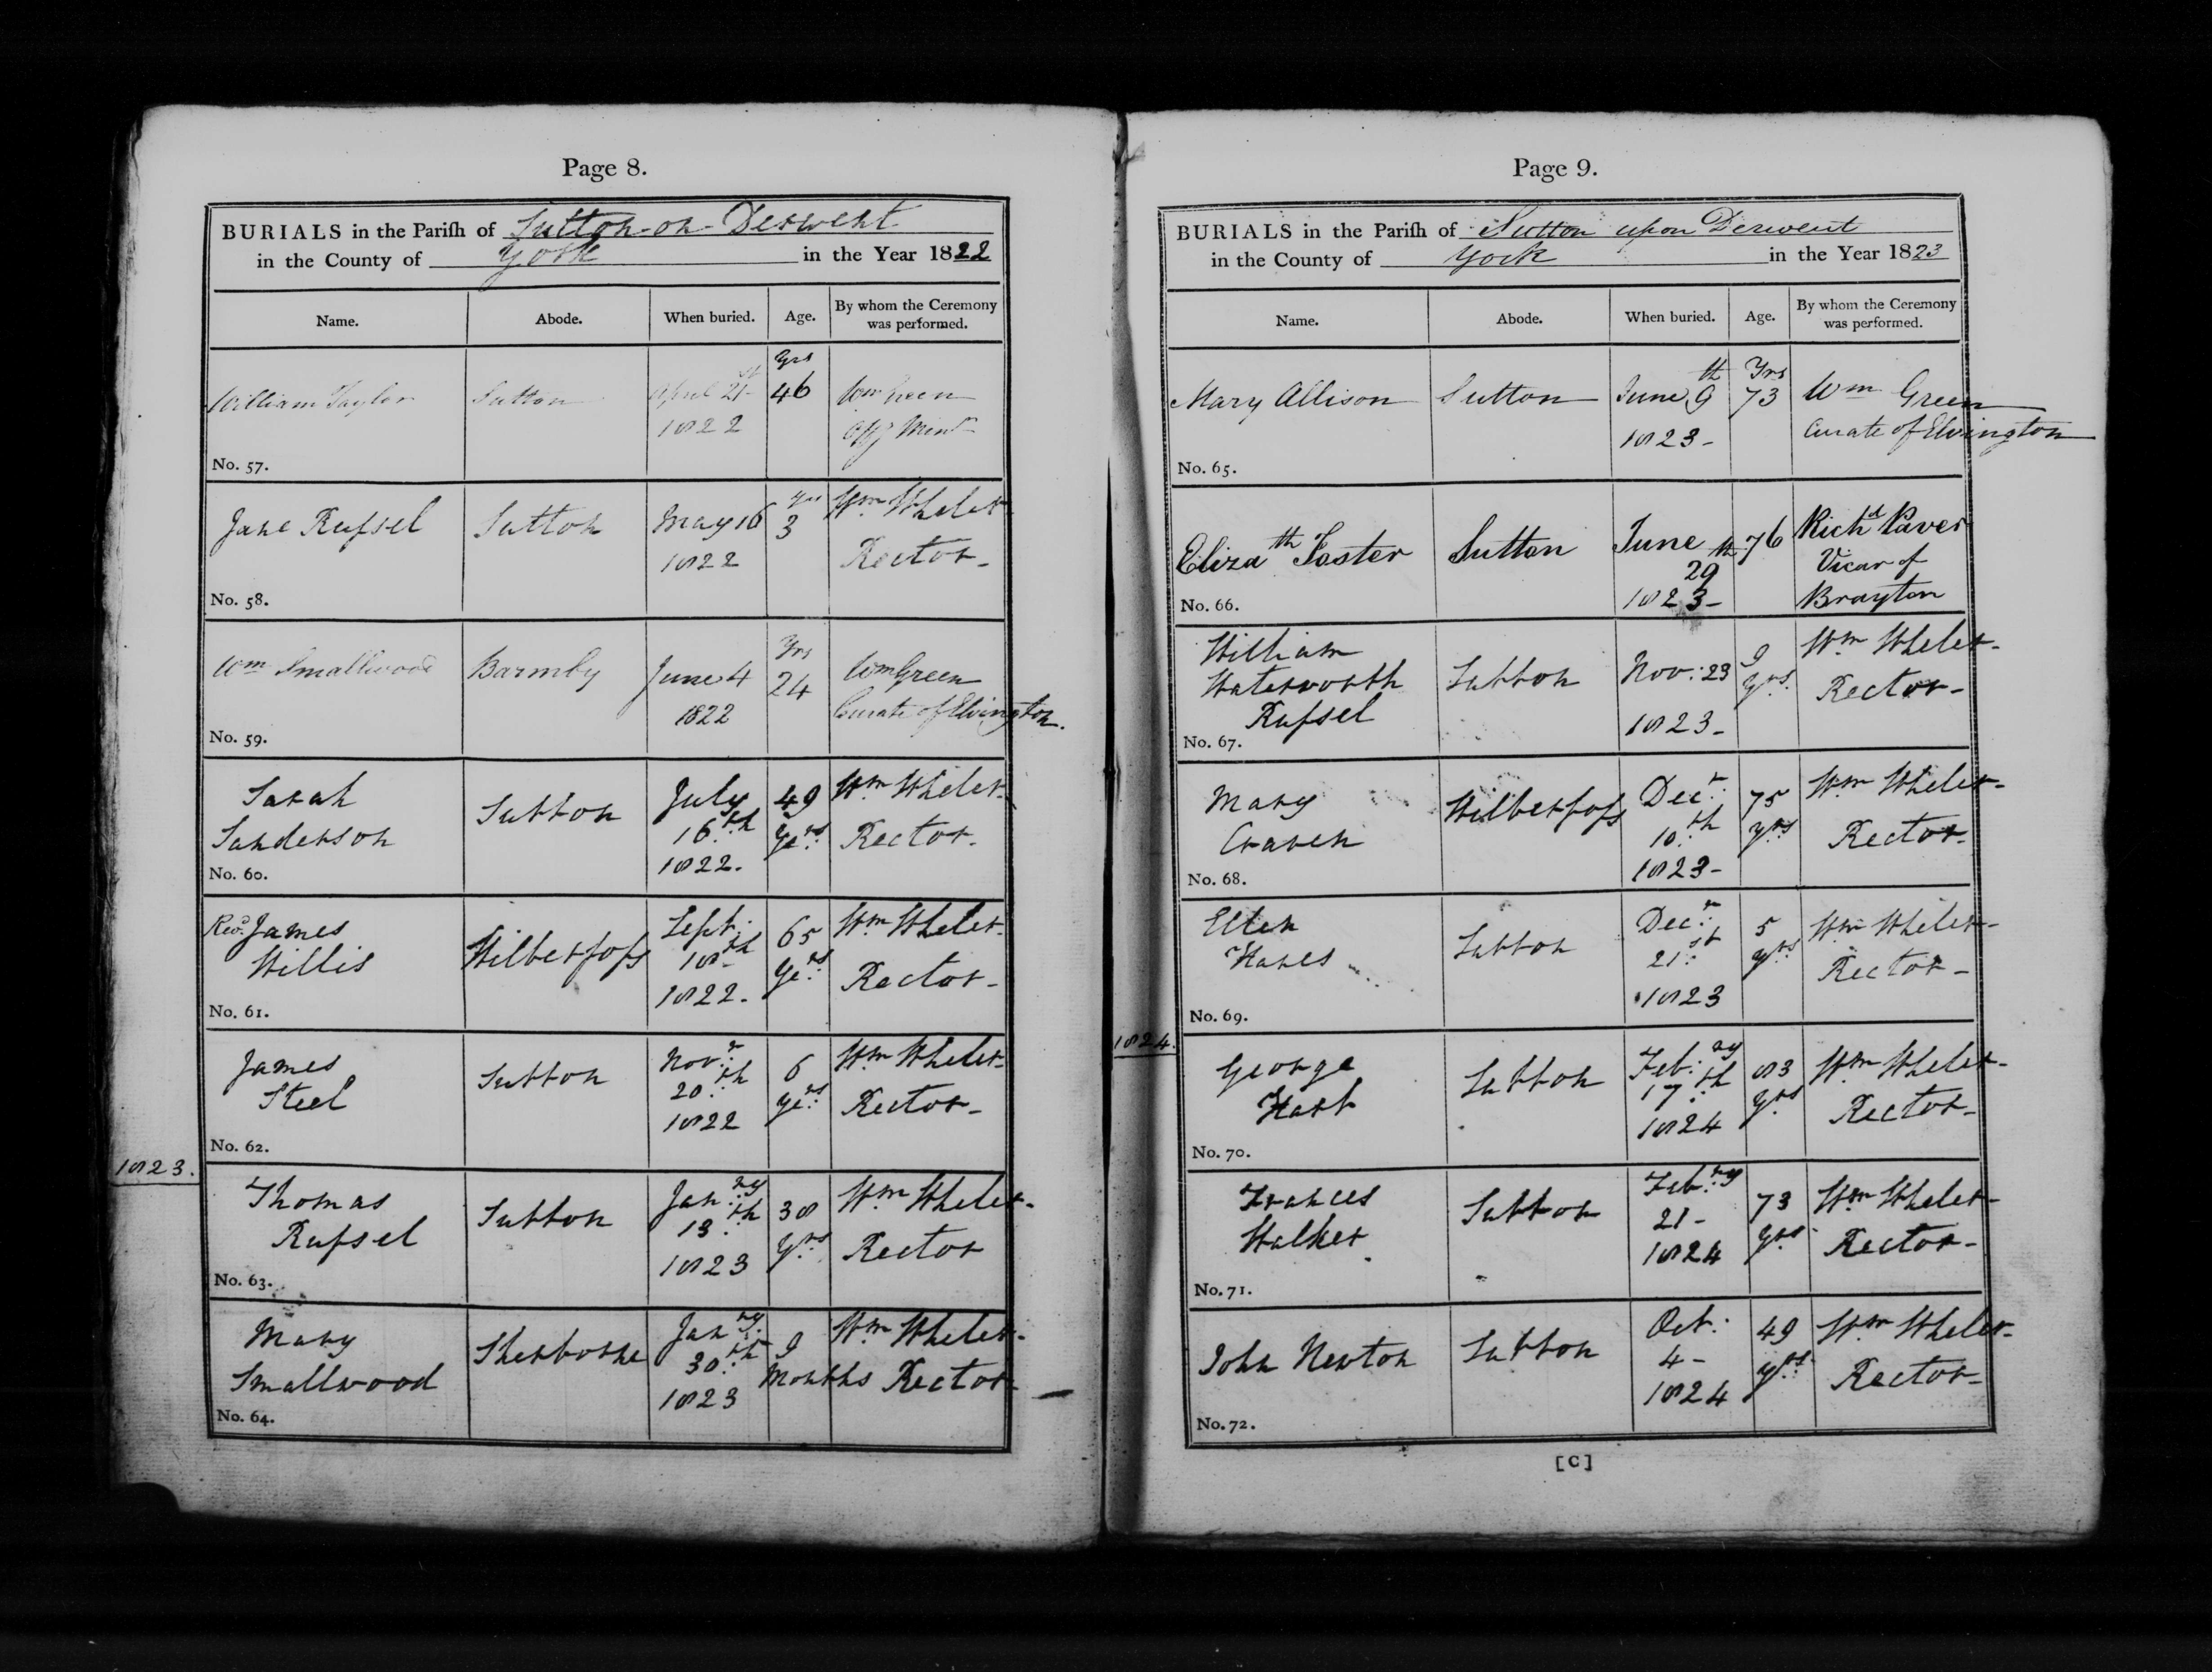 Page 8.
BURIALS in the Pariſh of Sutton-on-Derwent
in the County of York in the Year 1822
Name. Abode. When buried. Age. By whom the Ceremony was performed.
Yrs
William Taylor Sutton April 21st 46 Wm Green
1822 Offg Minr
No. 57.
yrs
Jane Ruſsel Sutton May 16 3 Wm Wheler
1822 Rector-
No. 58.
Yrs
Wm Smallwood Barmby June 4 24 Wm Green
1822 Curate of Elvington.
No. 59.
Sarah Sutton July 49 Wm Wheler-
Sanderson 16th Yrs Rector-
1822.
No. 60.
Revd James Wilberfoſs Sept. 65 Wm Wheler-
Willis 18th Yrs Rector-
1822.
No. 61.
James Sutton Novr 6 Wm Wheler-
Steel 20th Yrs Rector-
1822
No. 62.
1823.
Thomas Sutton Janry 38 Wm Wheler-
Ruſsel 13th Yrs Rector
1823
No. 63.
Mary Sherborne Janry 9 Wm Wheler-
Smallwood 30th Months Rector-
1823
No. 64.
Page 9.
BURIALS in the Pariſh of Sutton upon Derwent
in the County of York in the Year 1823
Name. Abode. When buried. Age. By whom the Ceremony was performed.
Yrs
Mary Allison Sutton June 9th 73 Wm Green
1823- Curate of Elvington
No. 65.
Elizath Foster Sutton June 76 Richd Paver
29th Vicar of
1823- Brayton
No. 66.
William Sutton Nov: 23 9 Wm Wheler-
Waterworth yrs. Rector-
Ruſsel 1823-
No. 67.
Mary Wilberfoſs Decr 75 Wm Wheler-
Craven 10th yrs Rector-
1823-
No. 68.
Ellen Sutton Decr 5 Wm Wheler-
21st yrs Rector-
1823
No. 69.
1824.
George Sutton Febry 83 Wm Wheler-
Hart 17th yrs Rector-
1824
No. 70.
Frances Sutton Febry 73 Wm Wheler-
Walker 21- yrs Rector-
1824
No. 71.
John Newton Sutton Oct: 49 Wm Wheler-
4- yrs Rector-
1824
No. 72.
[C]